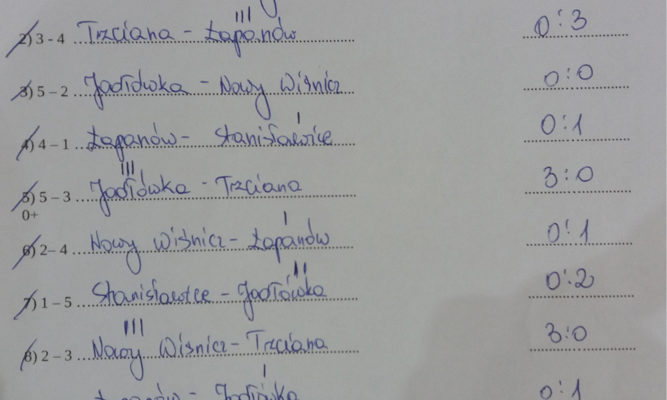 III
2) 3 - 4 Trzciana - Łapanów 0:3
3) 5 - 2 Jadłówka - Nowy Wiśnicz 0:0
I
4) 4 - 1 Łapanów - Stanisławice 0:1
III
5) 5 - 3 Jadłówka - Trzciana 3:0
0+
I
6) 2 - 4 Nowy Wiśnicz - Łapanów 0:1
II
7) 1 - 5 Stanisławice - Jadłówka 0:2
III
8) 2 - 3 Nowy Wiśnicz - Trzciana 3:0
I
Łapanów - Jadłówka 0:1